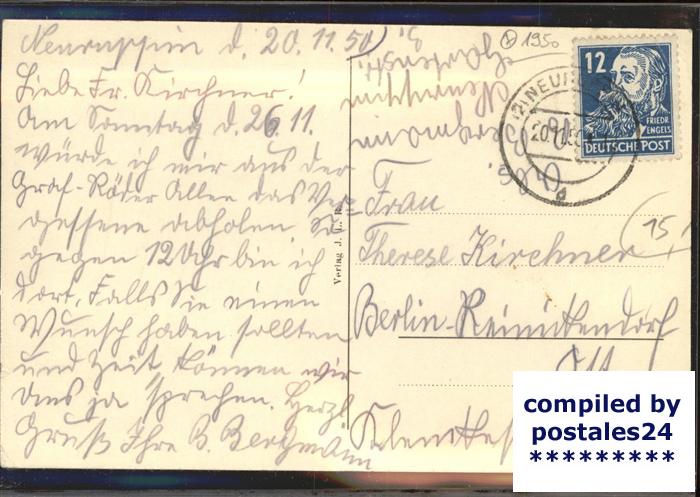 Neuruppin d. 20.11.50
Liebe Fr. Kirchner!
Am Sonntag d. 26.11.
würde ich mir aus der
Graf-Röder Allee das Ver-
gessene abholen. So
gegen 12 Uhr bin ich
dort, Falls Sie einen
Wunsch haben sollten
und Zeit können wir
uns ja sprechen. Herzl.
Gruß Ihre B. Bergmann
Verlag J.
Abs.
Bergmann
Neuruppin
1950
12
FRIEDR.
ENGELS
DEUTSCHE POST
20.11.50
Frau
Therese Kirchner
15
Berlin-Reinickendorf
Ost
compiled by
postales24
*********